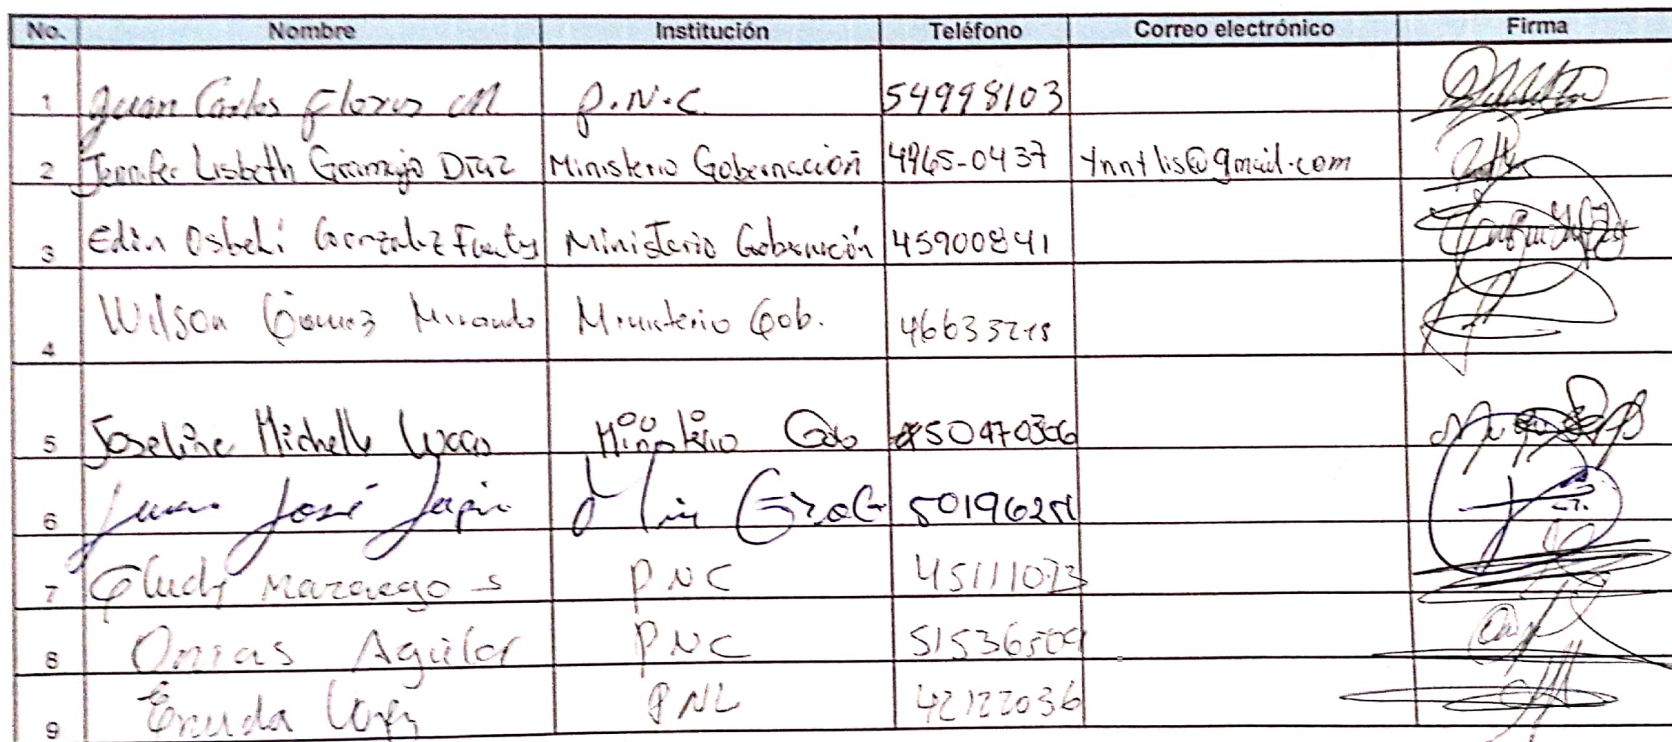 No. Nombre Institución Teléfono Correo electrónico Firma
1 Juan Carlos Flores M P.N.C. 54998103
2 Lisbeth Gramajo Díaz Ministerio Gobernación 4965-0437 ynntlis@gmail.com
3 Edin Osbeli Gonzalez Fuentes Ministerio Gobernación 45900841
4 Wilson Gómez Miranda Ministerio Gob. 46633218
5 Joseline Michelle Ministerio Gob 50470306
6 Juan José Min
7 Mazariegos PNC 45111073
8 Onias Aguilar PNC 51536509
9 PNC 42122036